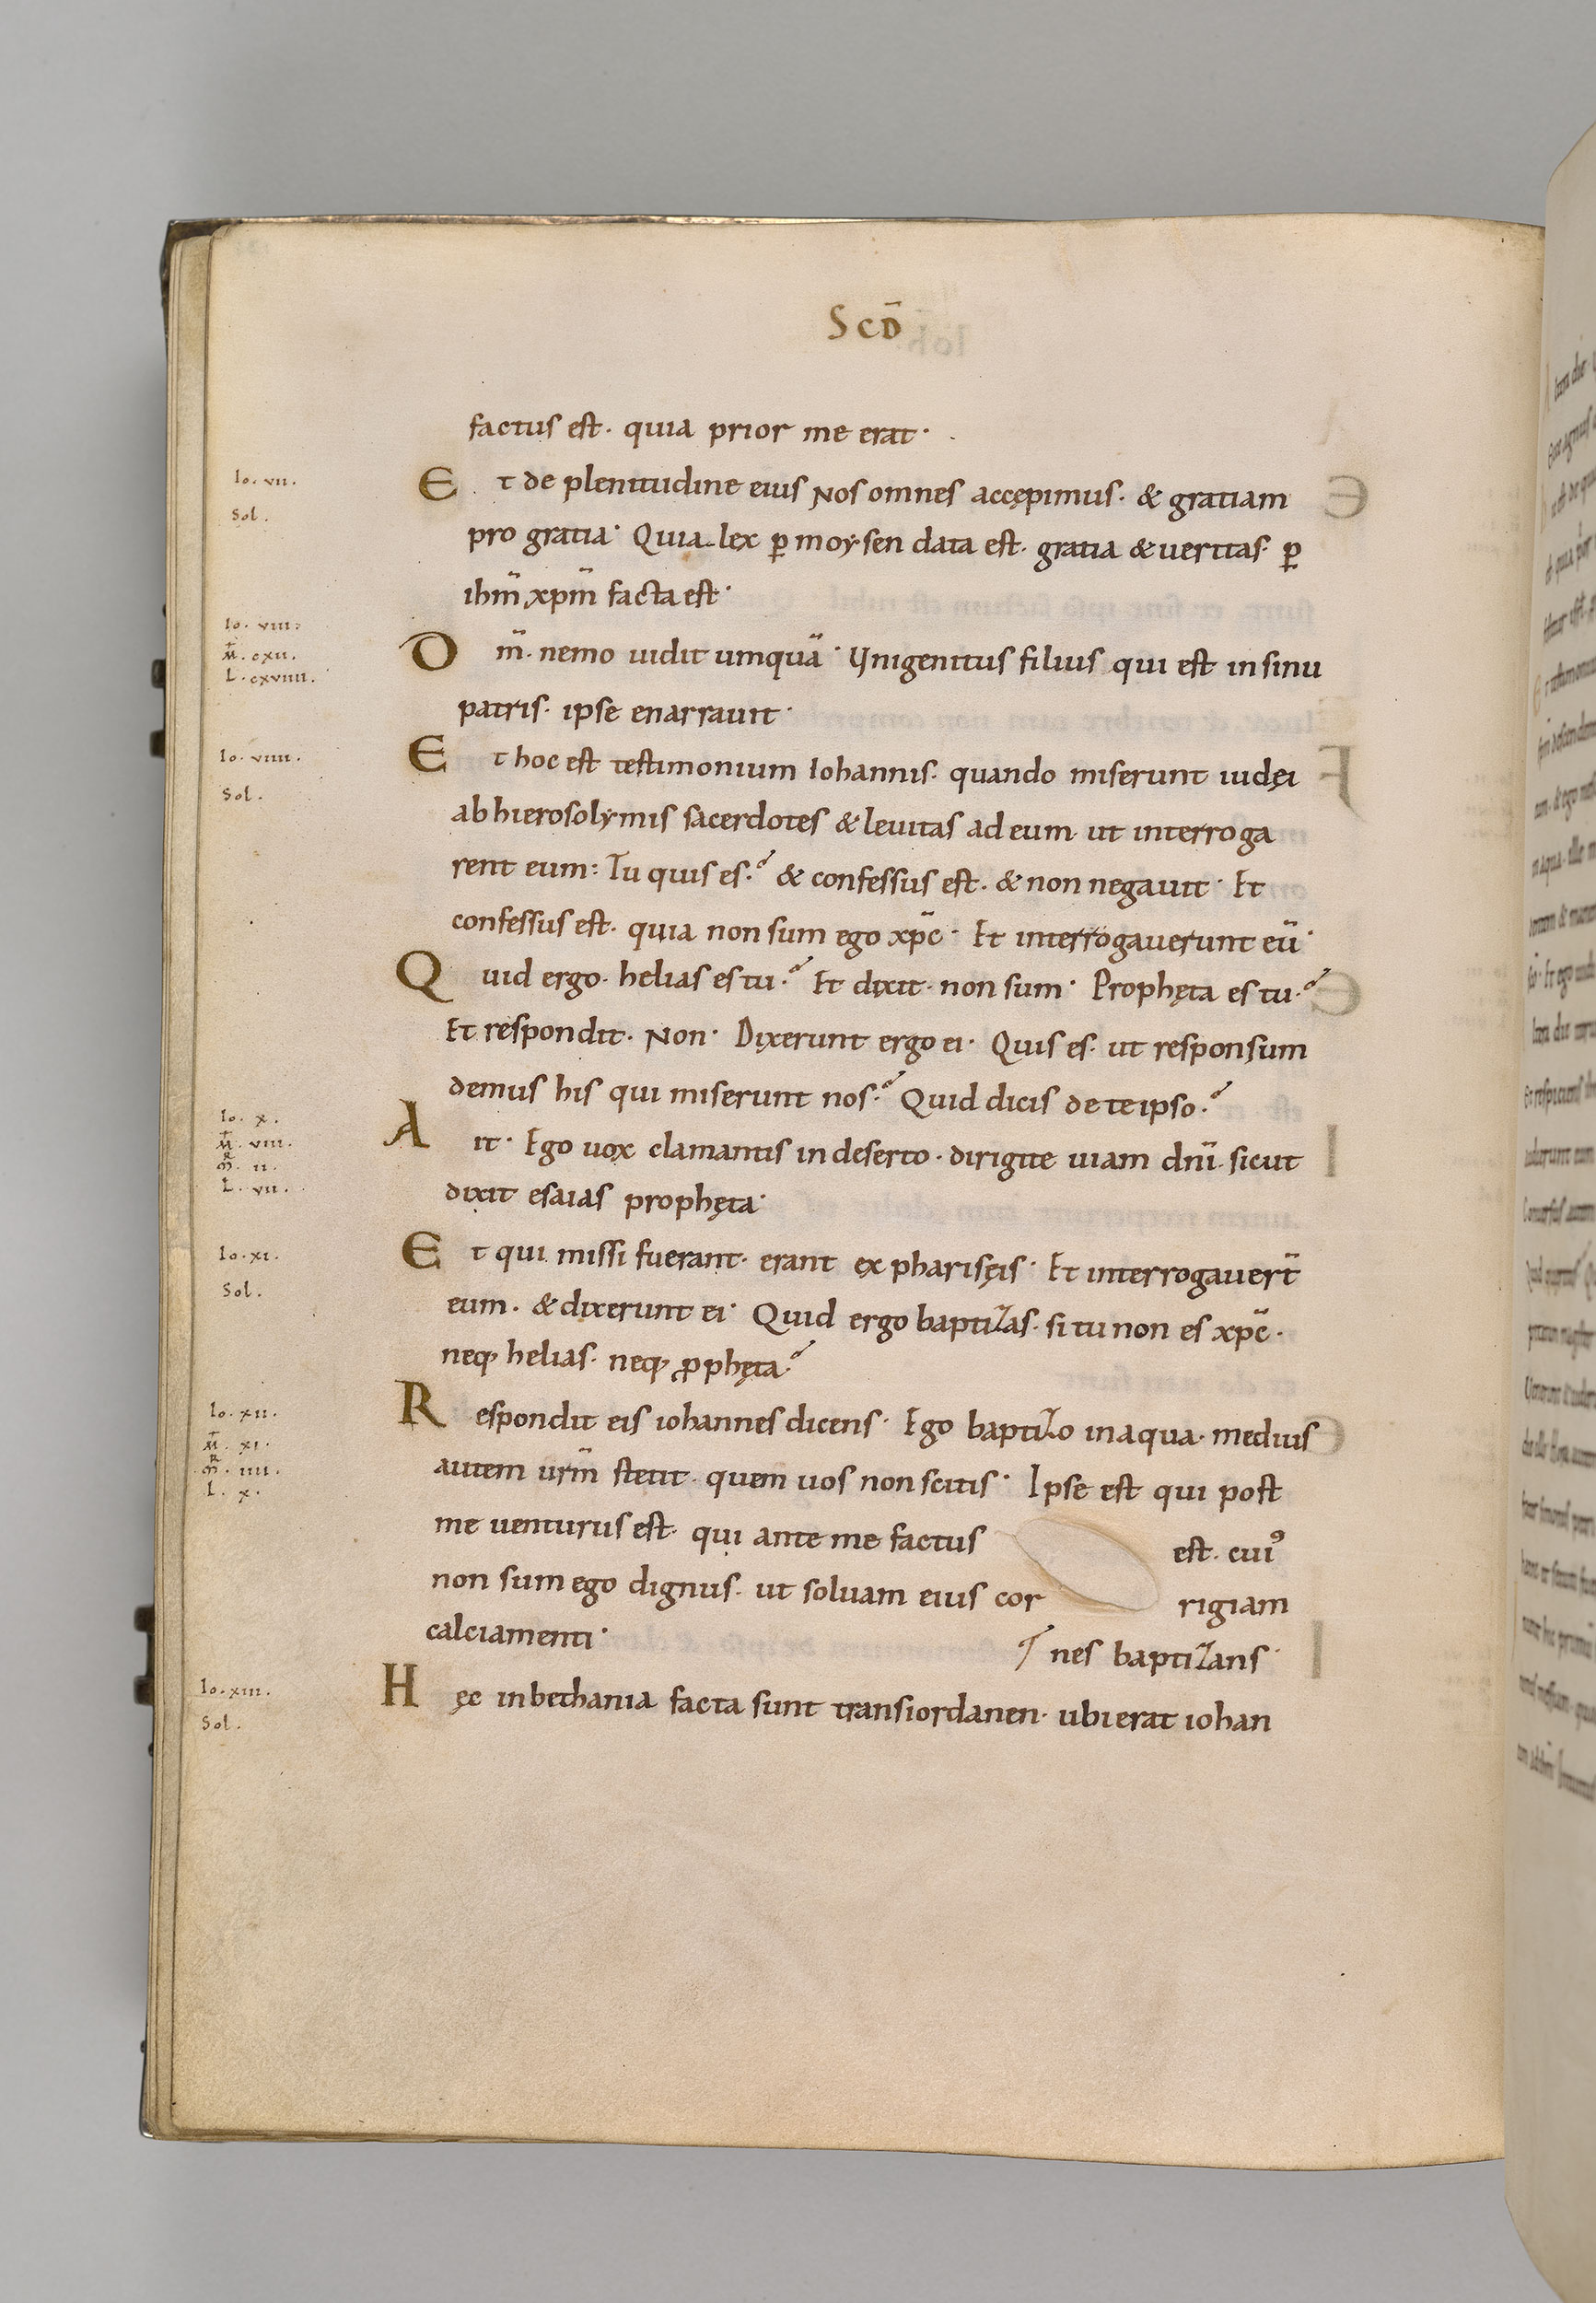 Scd̄
factus est· quia prior me erat·
Io· vii·
Et de plenitudine eius Nos omnes accępimus· & gratiam
Sol·
pro gratia· Quia lex p̲ moysen data est· gratia & ueritas· p̲
ihm̄ xpm̄ facta est·
Io· viii·
M̄· cxii·
L· cxviiii·
Dm̄· nemo uidit umquā· Unigenitus filius qui est in sinu
patris· ipse enarrauit·
Io· viiii·
Et hoc est testimonium Iohannis· quando miserunt iudęi
Sol·
ab hierosolymis sacerdotes & leuitas ad eum· ut interroga
rent eum: Tu quis es·? & confessus est· & non negauit· Et
confessus est· quia non sum ego xpc̄· Et interrogauerunt eū·
Quid ergo· helias es tu·? Et dixit· non sum· Prophęta es tu·?
Et respondit· Non· Dixerunt ergo ei· Quis es· ut responsum
demus his qui miserunt nos·? Quid dicis de te ipso·?
Io· x·
M̄· viii·
m̄R· ii·
L· vii·
Ait· Ego uox clamantis in deserto· dirigite uiam dnī· sicut
dixit esaias prophęta·
Io· xi·
Et qui missi fuerant· erant ex pharisęis· Et interrogauert̄
Sol·
eum· & dixerunt ei· Quid ergo baptizas· si tu non es xpc̄·
neq; helias· neq; ꝓphęta·?
Io· xii·
M̄· xi·
m̄R· iiii·
L· x·
Respondit eis iohannes dicens· Ego baptizo in aqua· medius
autem urm̄ stetit· quem uos non scitis· Ipse est qui post
me uenturus est· qui ante me factus est· cuiꝰ
non sum ego dignus· ut soluam eius cor rigiam
calciamenti·
nes baptizans·
Io· xiii·
Hęc in bethania facta sunt trans iordanen· ubi erat iohan
Sol·